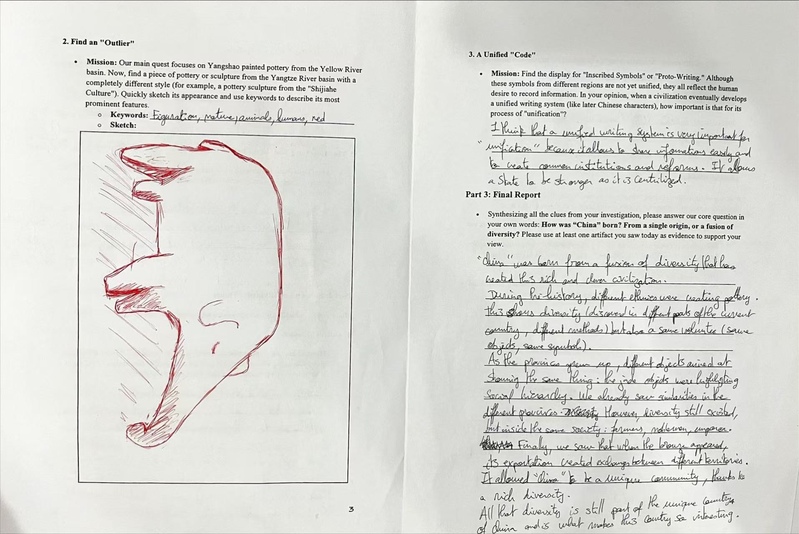 2. Find an "Outlier"
• Mission: Our main quest focuses on Yangshao painted pottery from the Yellow River
basin. Now, find a piece of pottery or sculpture from the Yangtze River basin with a
completely different style (for example, a pottery sculpture from the "Shijiahe
Culture"). Quickly sketch its appearance and use keywords to describe its most
prominent features.
○ Keywords: Figuration, nature, animals, humans, red
○ Sketch:
3
3. A Unified "Code"
• Mission: Find the display for "Inscribed Symbols" or "Proto-Writing." Although
these symbols from different regions are not yet unified, they all reflect the human
desire to record information. In your opinion, when a civilization eventually develops
a unified writing system (like later Chinese characters), how important is that for its
process of "unification"?
I think that a unified writing system is very important for
"unification" because it allows to share informations easily and
to create common institutions and reforms. It allows
a State to be stronger as it is centrilized.
Part 3: Final Report
• Synthesizing all the clues from your investigation, please answer our core question
in your own words: How was "China" born? From a single origin, or a fusion of
diversity? Please use at least one artifact you saw today as evidence to support your
view.
"China" was born from a fusion of diversity that has
created this rich and clever civilization.
During Pre-history, different ethnies were creating pottery.
this shows diversity (discovered in different parts of the current
country, different methods) but also a same (same
objects, same symbols).
As the provinces grew up, different objects aimed at
showing the same thing: the jade objects was highlighting
Social hierarchy. We already saw similarities in the
different provinces. However, diversity still existed,
but inside the same society: farmers, noblemen, emperor.
Finally, we saw that when the bronze appeared,
its exportation created exchanges between different territories.
It allowed "China" to be a unique community, thanks to
a rich diversity.
All that diversity is still part of the unique country
of China and is what makes this country so interesting.